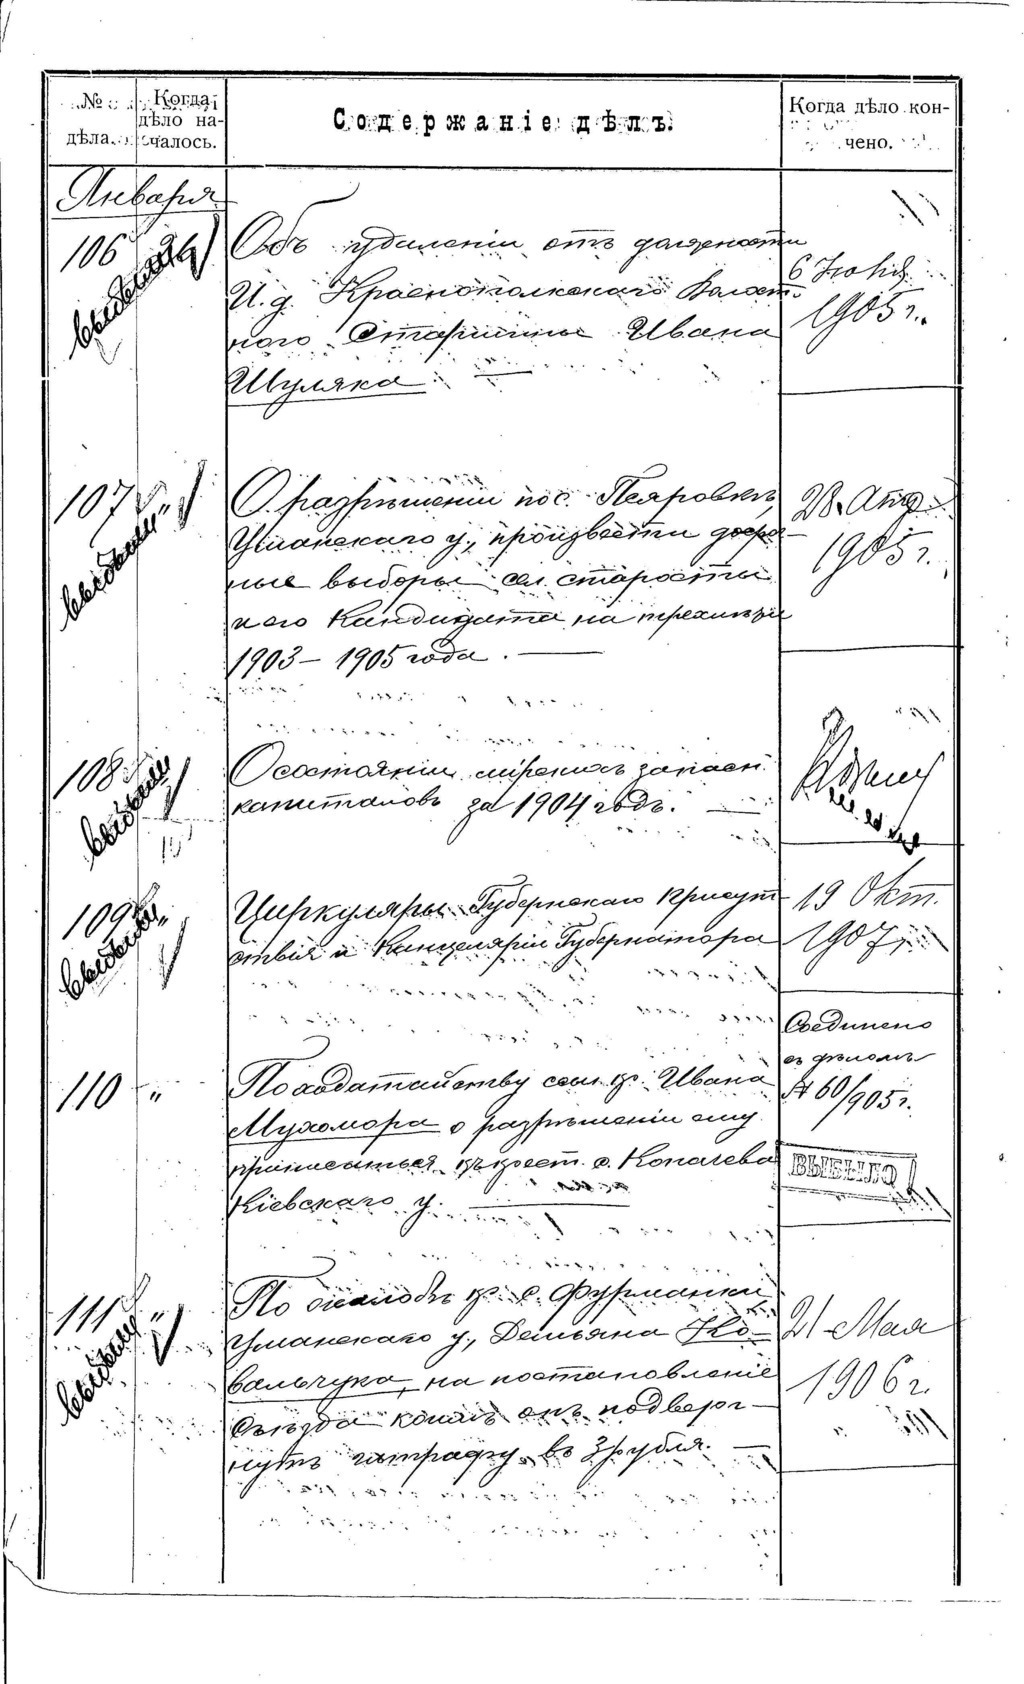 № дѣла.
Когда дѣло на-
чалось.
Содержаніе дѣлъ.
Когда дѣло кон-
чено.
Января
106 26
Объ удаленіи отъ должности
И. д. Краснопольскаго Волост-
ного Старшины Ивана
Шуляка
6 Июня
1905 г.
107 "
О разрѣшеніи пос.
Уманскаго у., произвести досроч-
ные выборы сел. старосты
и его Кандидата на трехлѣтіе
1903 – 1905 года.
28. Апр.
1905 г.
108
О состояніи мірскихъ запасн.
капиталовъ за 1904 годъ.
109 "
Циркуляры Губернскаго Присут
ствія и Канцеляріи Губернатора
19 Окт.
1907 г.
110 "
По ходатайству сел. кр. Ивана
Мухомора о разрѣшеніи ему
приписаться къ крест. с. Копачева
Кіевскаго у.
Соединено
съ дѣломъ
№ 60/905 г.
ВЫБЫЛО
111 "
По жалобѣ кр. с. Фурманки
Уманскаго у., Демьяна Ко-
вальчука, на постановленіе
Съѣзда коимъ онъ подверг-
нутъ штрафу въ 3 рубля.
21 Мая
1906 г.